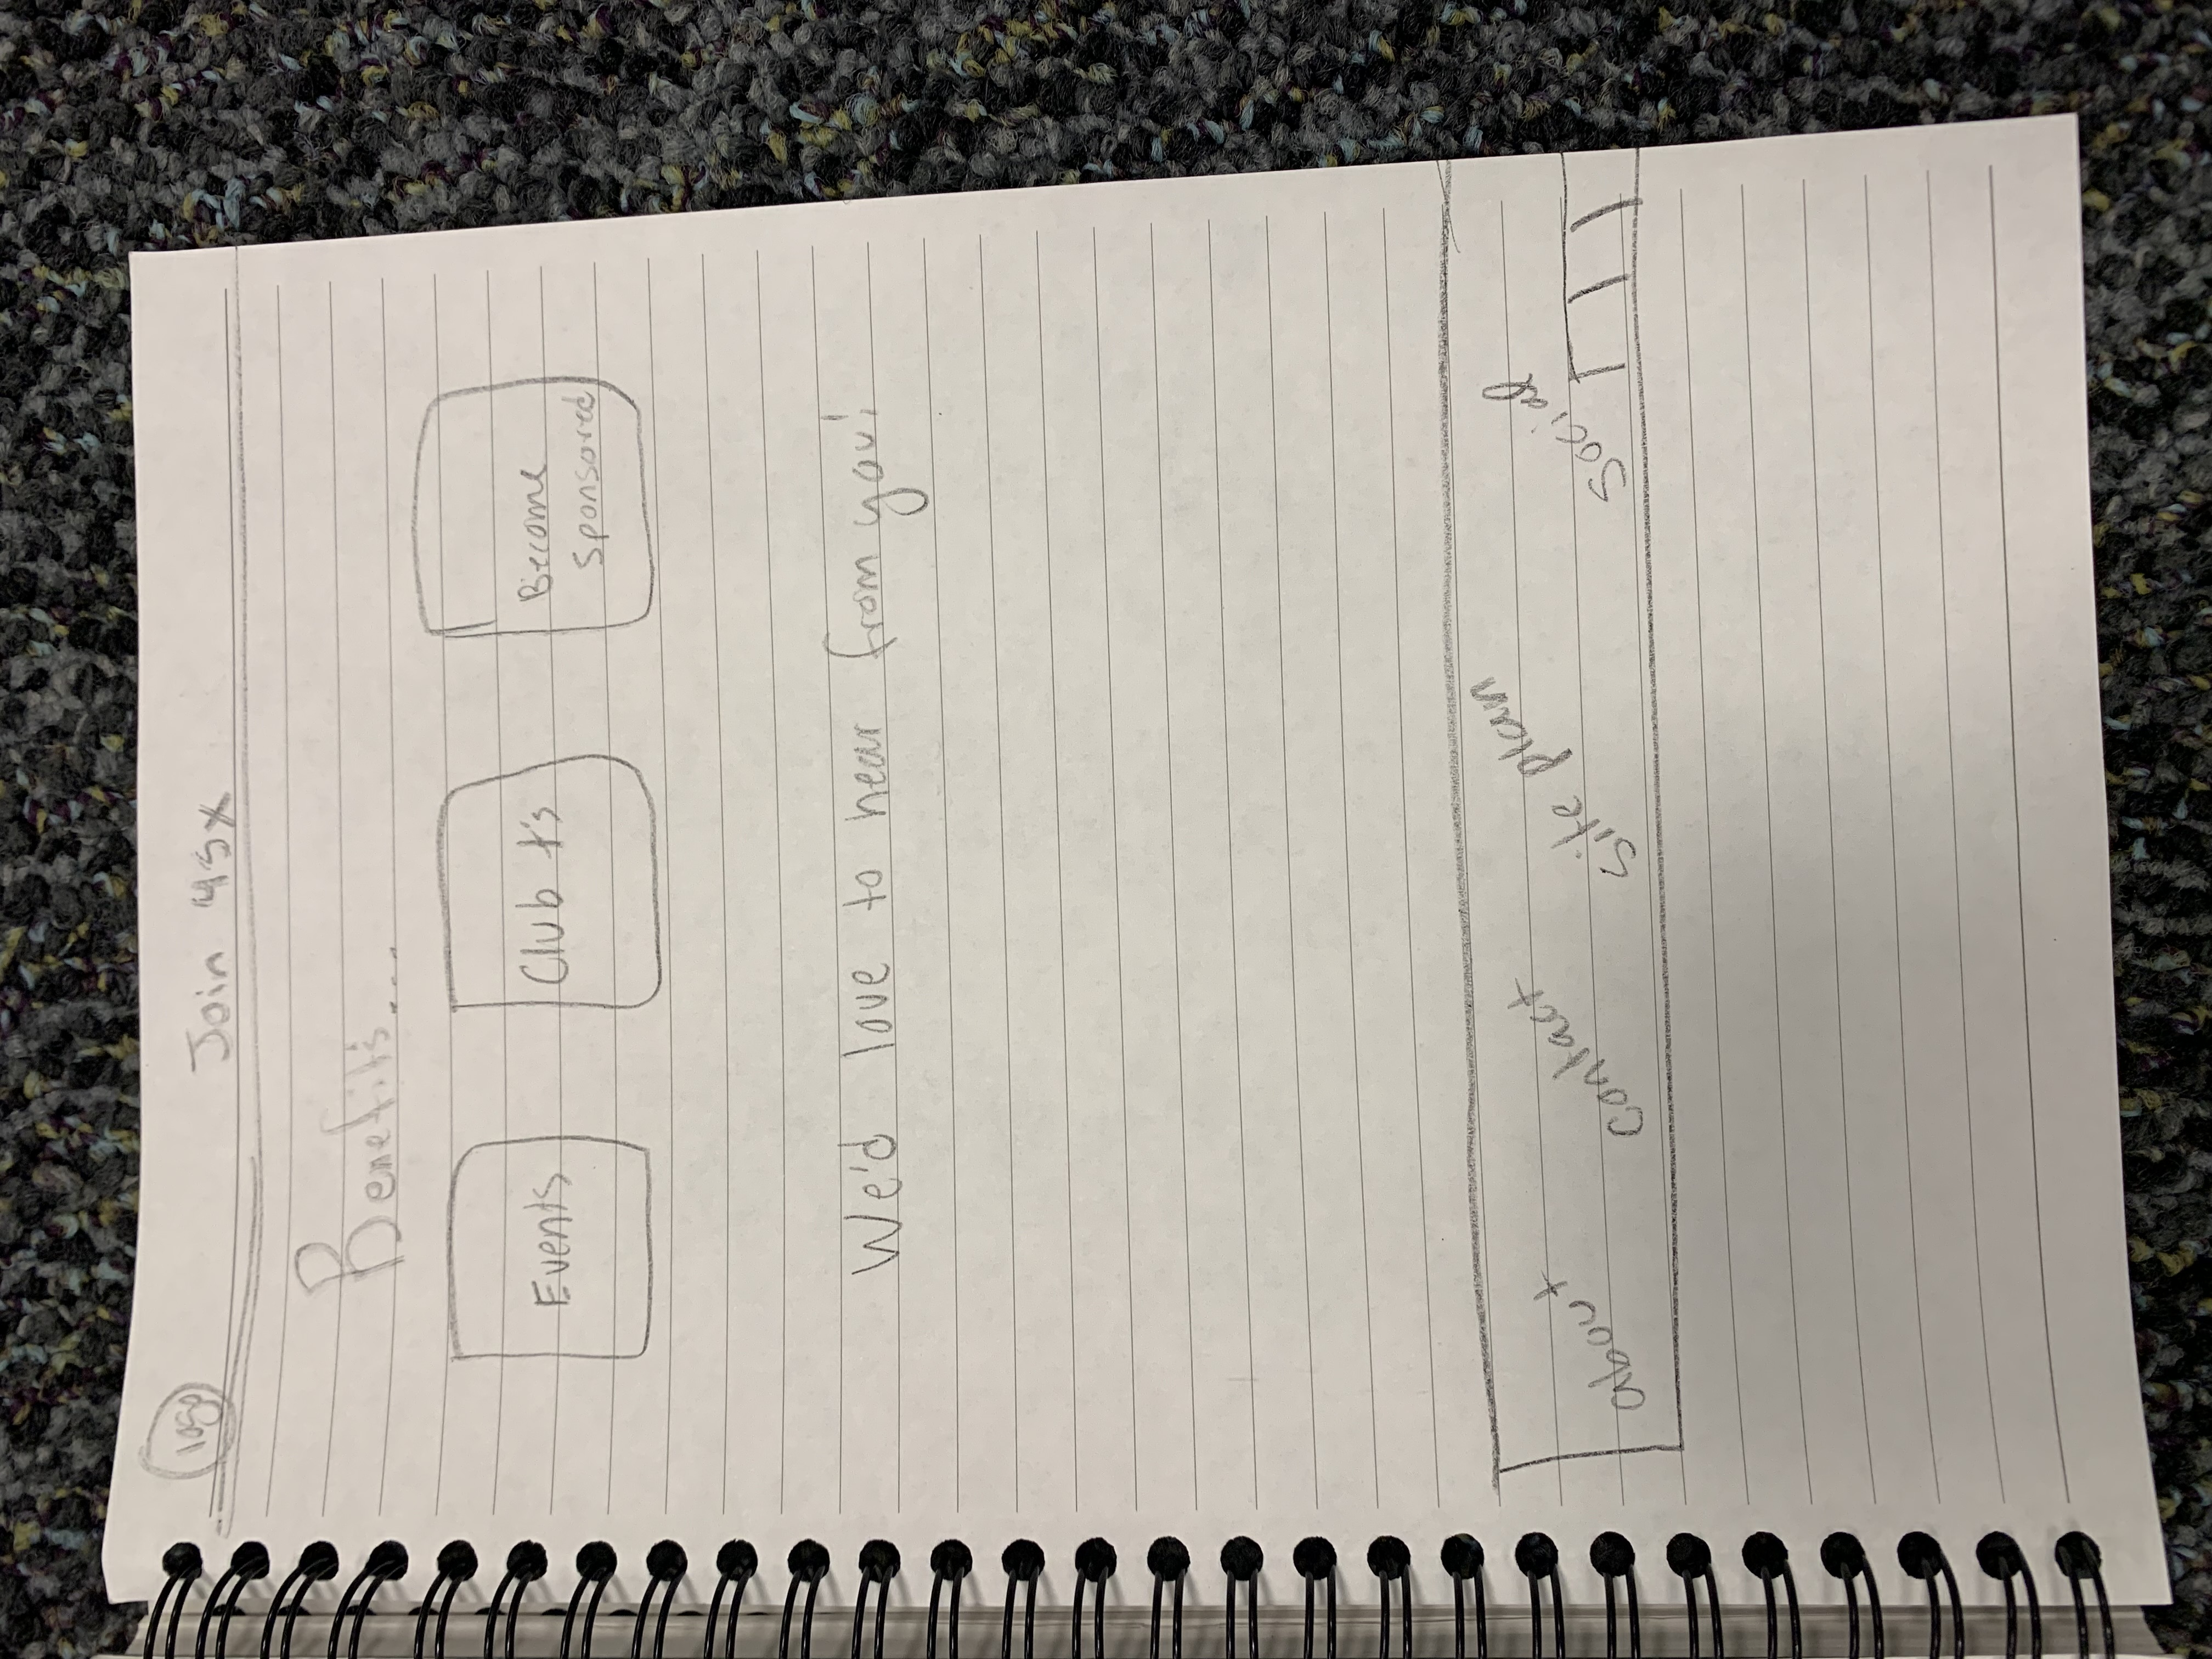 logo
Join 4sx
Benefit's...
Events
Club t's
Become
Sponsored
We'd love to hear from you!
about
contact
site plan
Social